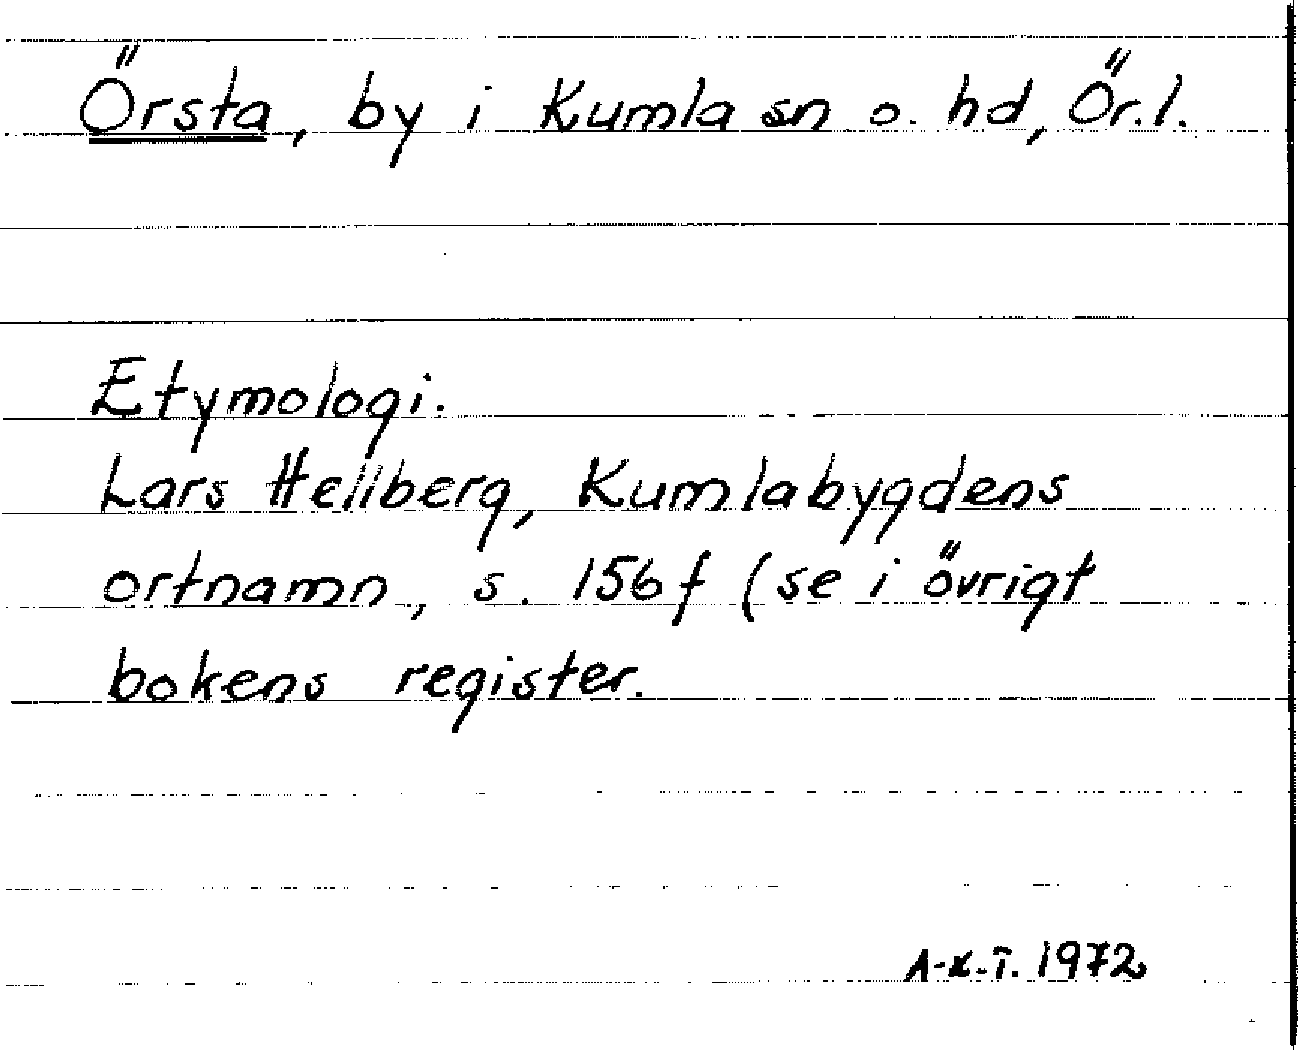 Örsta, by i Kumla sn o. hd, Ör.l.
Etymologi.
Lars Hellberg, Kumlabygdens
ortnamn, s. 156f (se i övrigt
bokens register.
A-K.T. 1972